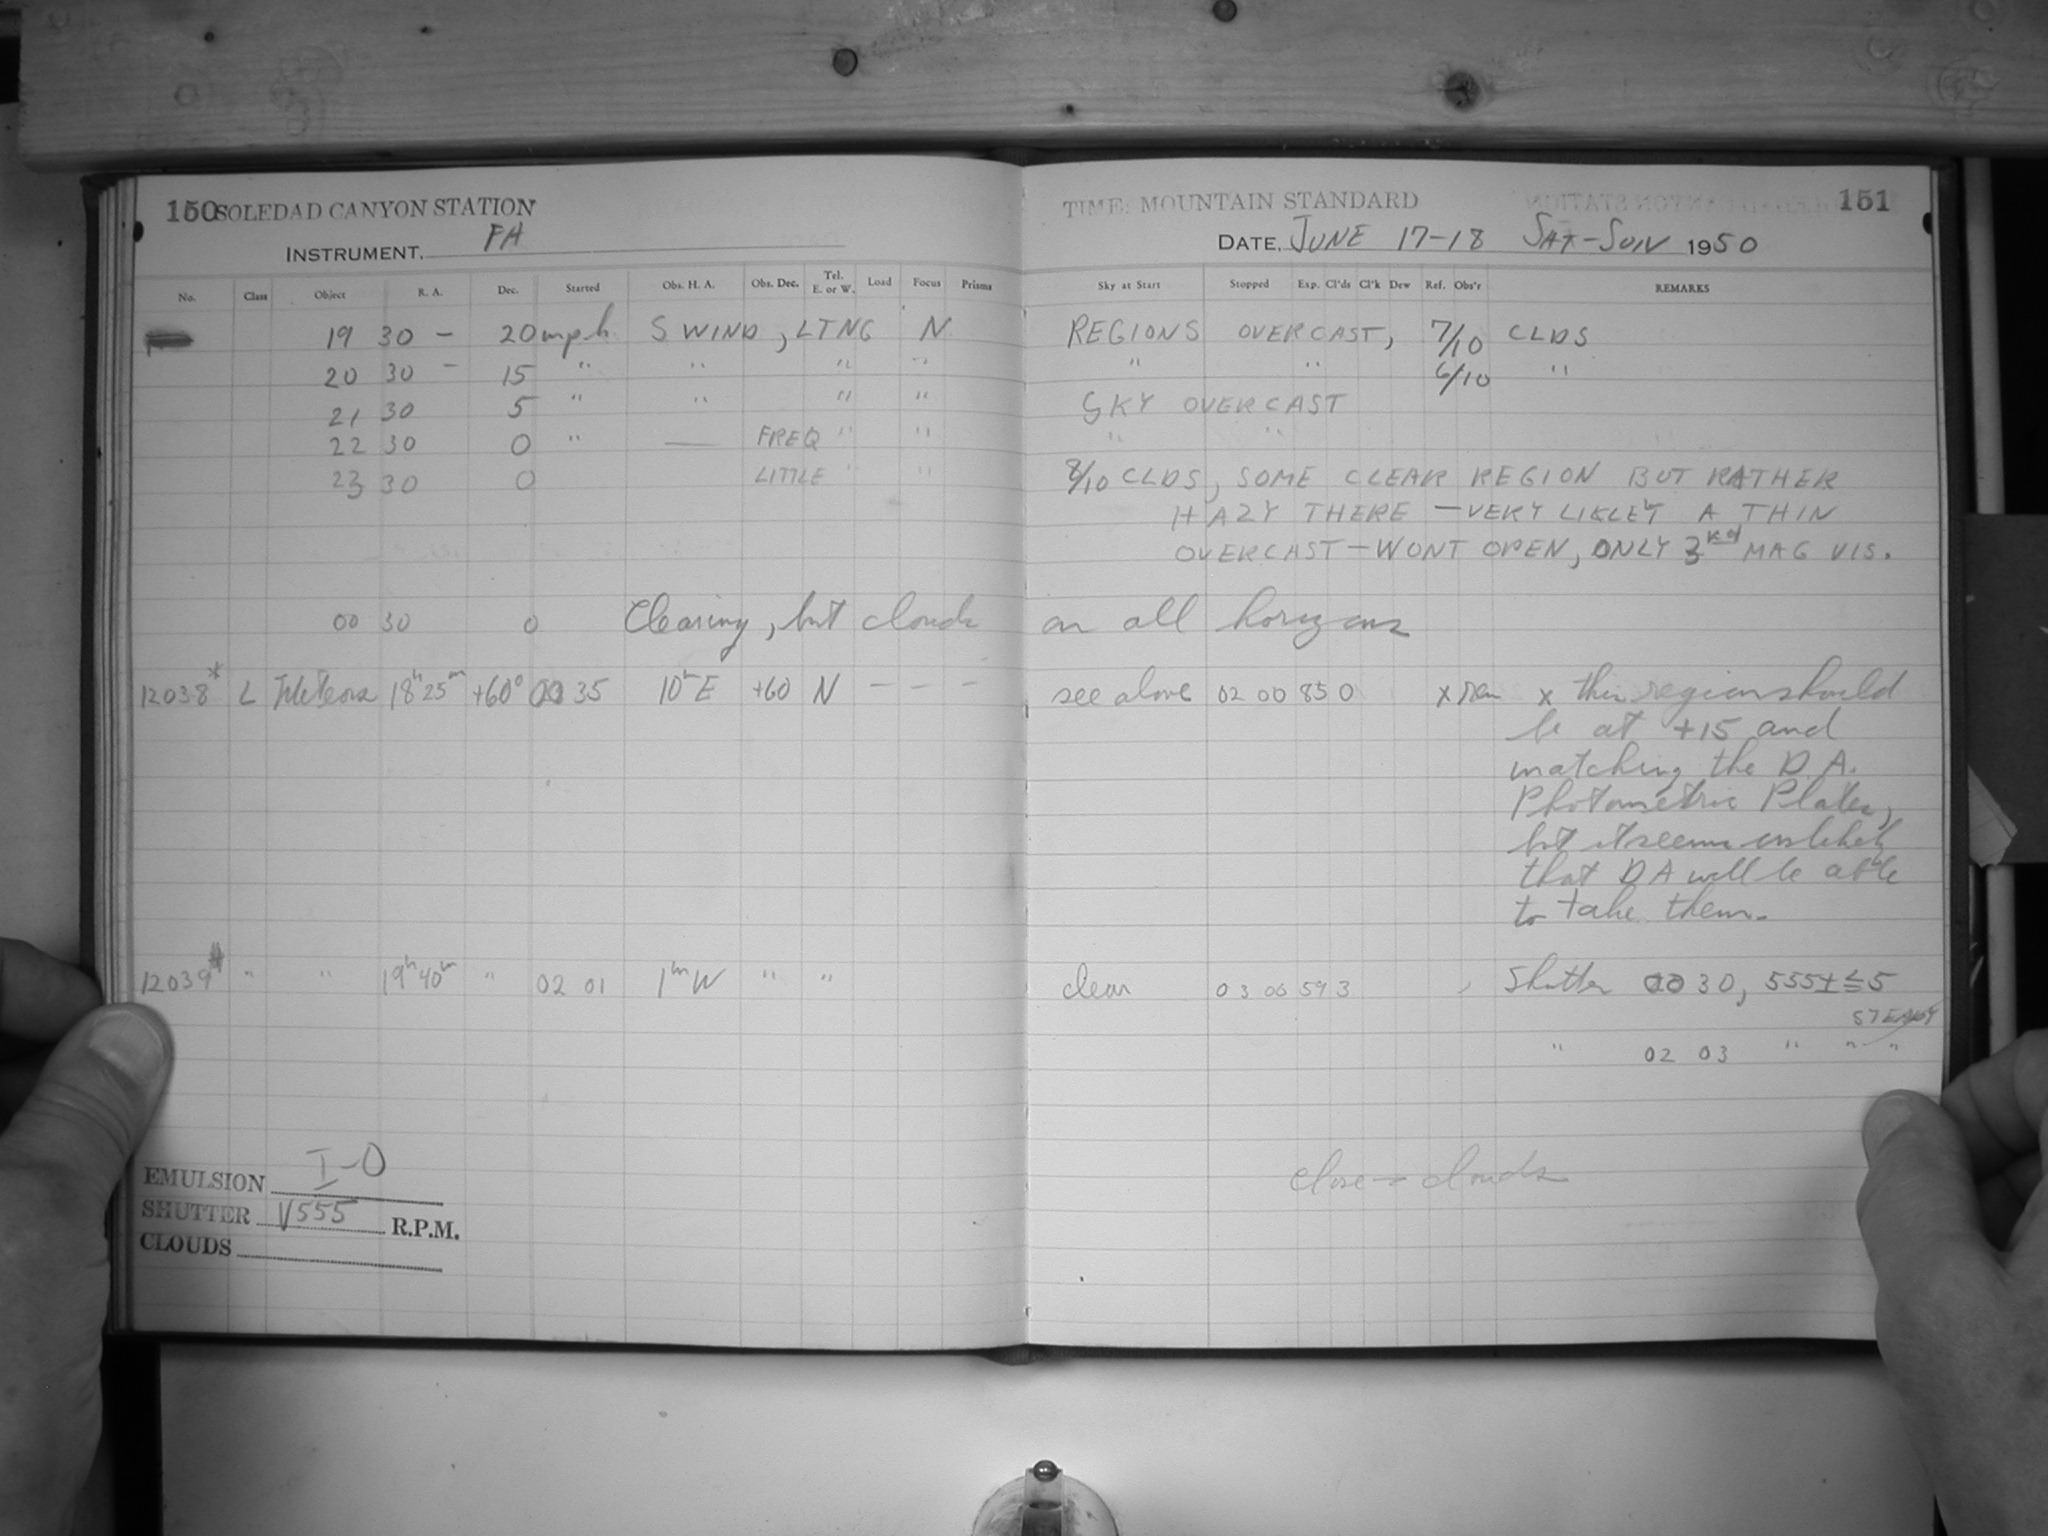 150 SOLEDAD CANYON STATION
INSTRUMENT. FA
No. Class Object R. A. Dec. Started Obs. H. A. Obs. Dec. Tel. E. or W. Load Focus Prisms
19 30 - 20 mph S WIND, LTNG N
20 30 - 15 " " " "
21 30 5 " " " "
22 30 0 " — FREQ " "
23 30 0 LITTLE " "
00 30 0 Clearing, but clouds
12038* L Meteors 18h 25m +60° 00 35 10m E +60 N — — —
12039 " " 19h 40m " 02 01 1m W " "
EMULSION I-O
SHUTTER V555 R.P.M.
CLOUDS
TIME: MOUNTAIN STANDARD 151
DATE, JUNE 17-18 SAT-SUN 1950
Sky at Start Stopped Exp. Cl'ds Cl'k Dew Ref. Obs'r REMARKS
REGIONS OVERCAST, 7/10 CLDS
" " 6/10 "
SKY OVERCAST
" "
8/10 CLDS, SOME CLEAR REGION BUT RATHER
HAZY THERE — VERY LIKLEY A THIN
OVERCAST — WONT OPEN, ONLY 3rd MAG VIS.
on all horizons
see above 02 00 85 0 x x this region should
be at +15 and
matching the D.A.
Photometric Plates,
but it seems unlikely
that DA will be able
to take them.
clear 03 00 59 3 Shutter 00 30, 555 ± ≤ 5
STEADY
" 02 03 " " "
close - clouds